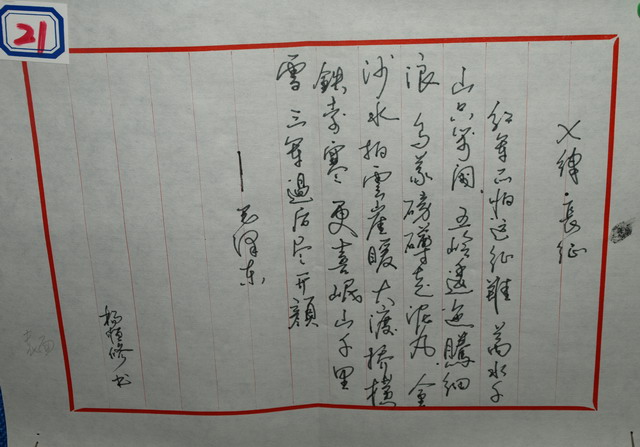 21
七律·長征
红军不怕远征難 萬水千
山只等闲 五岭逶迤騰细
浪 乌蒙磅礴走泥丸 金
沙水拍雲崖暖 大渡桥横
鉄索寒 更喜岷山千里
雪 三军過后尽开顔
—毛泽东
杨恒修 书